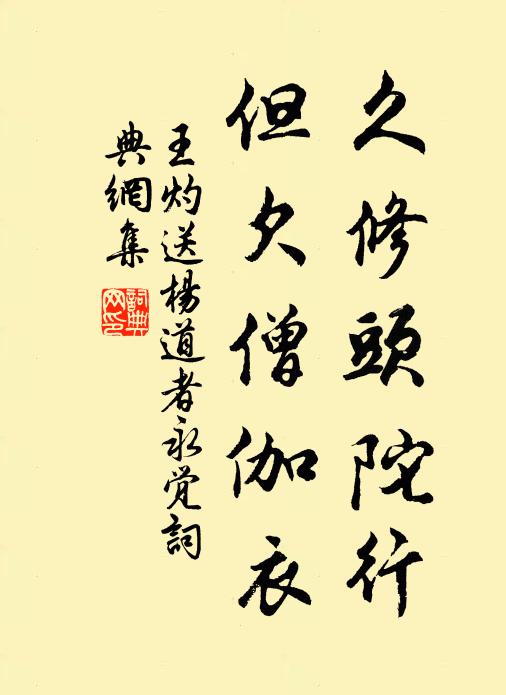 久修頭陀行
但欠僧伽衣
王灼送楊道者永覺詞
典網集
詞典網印